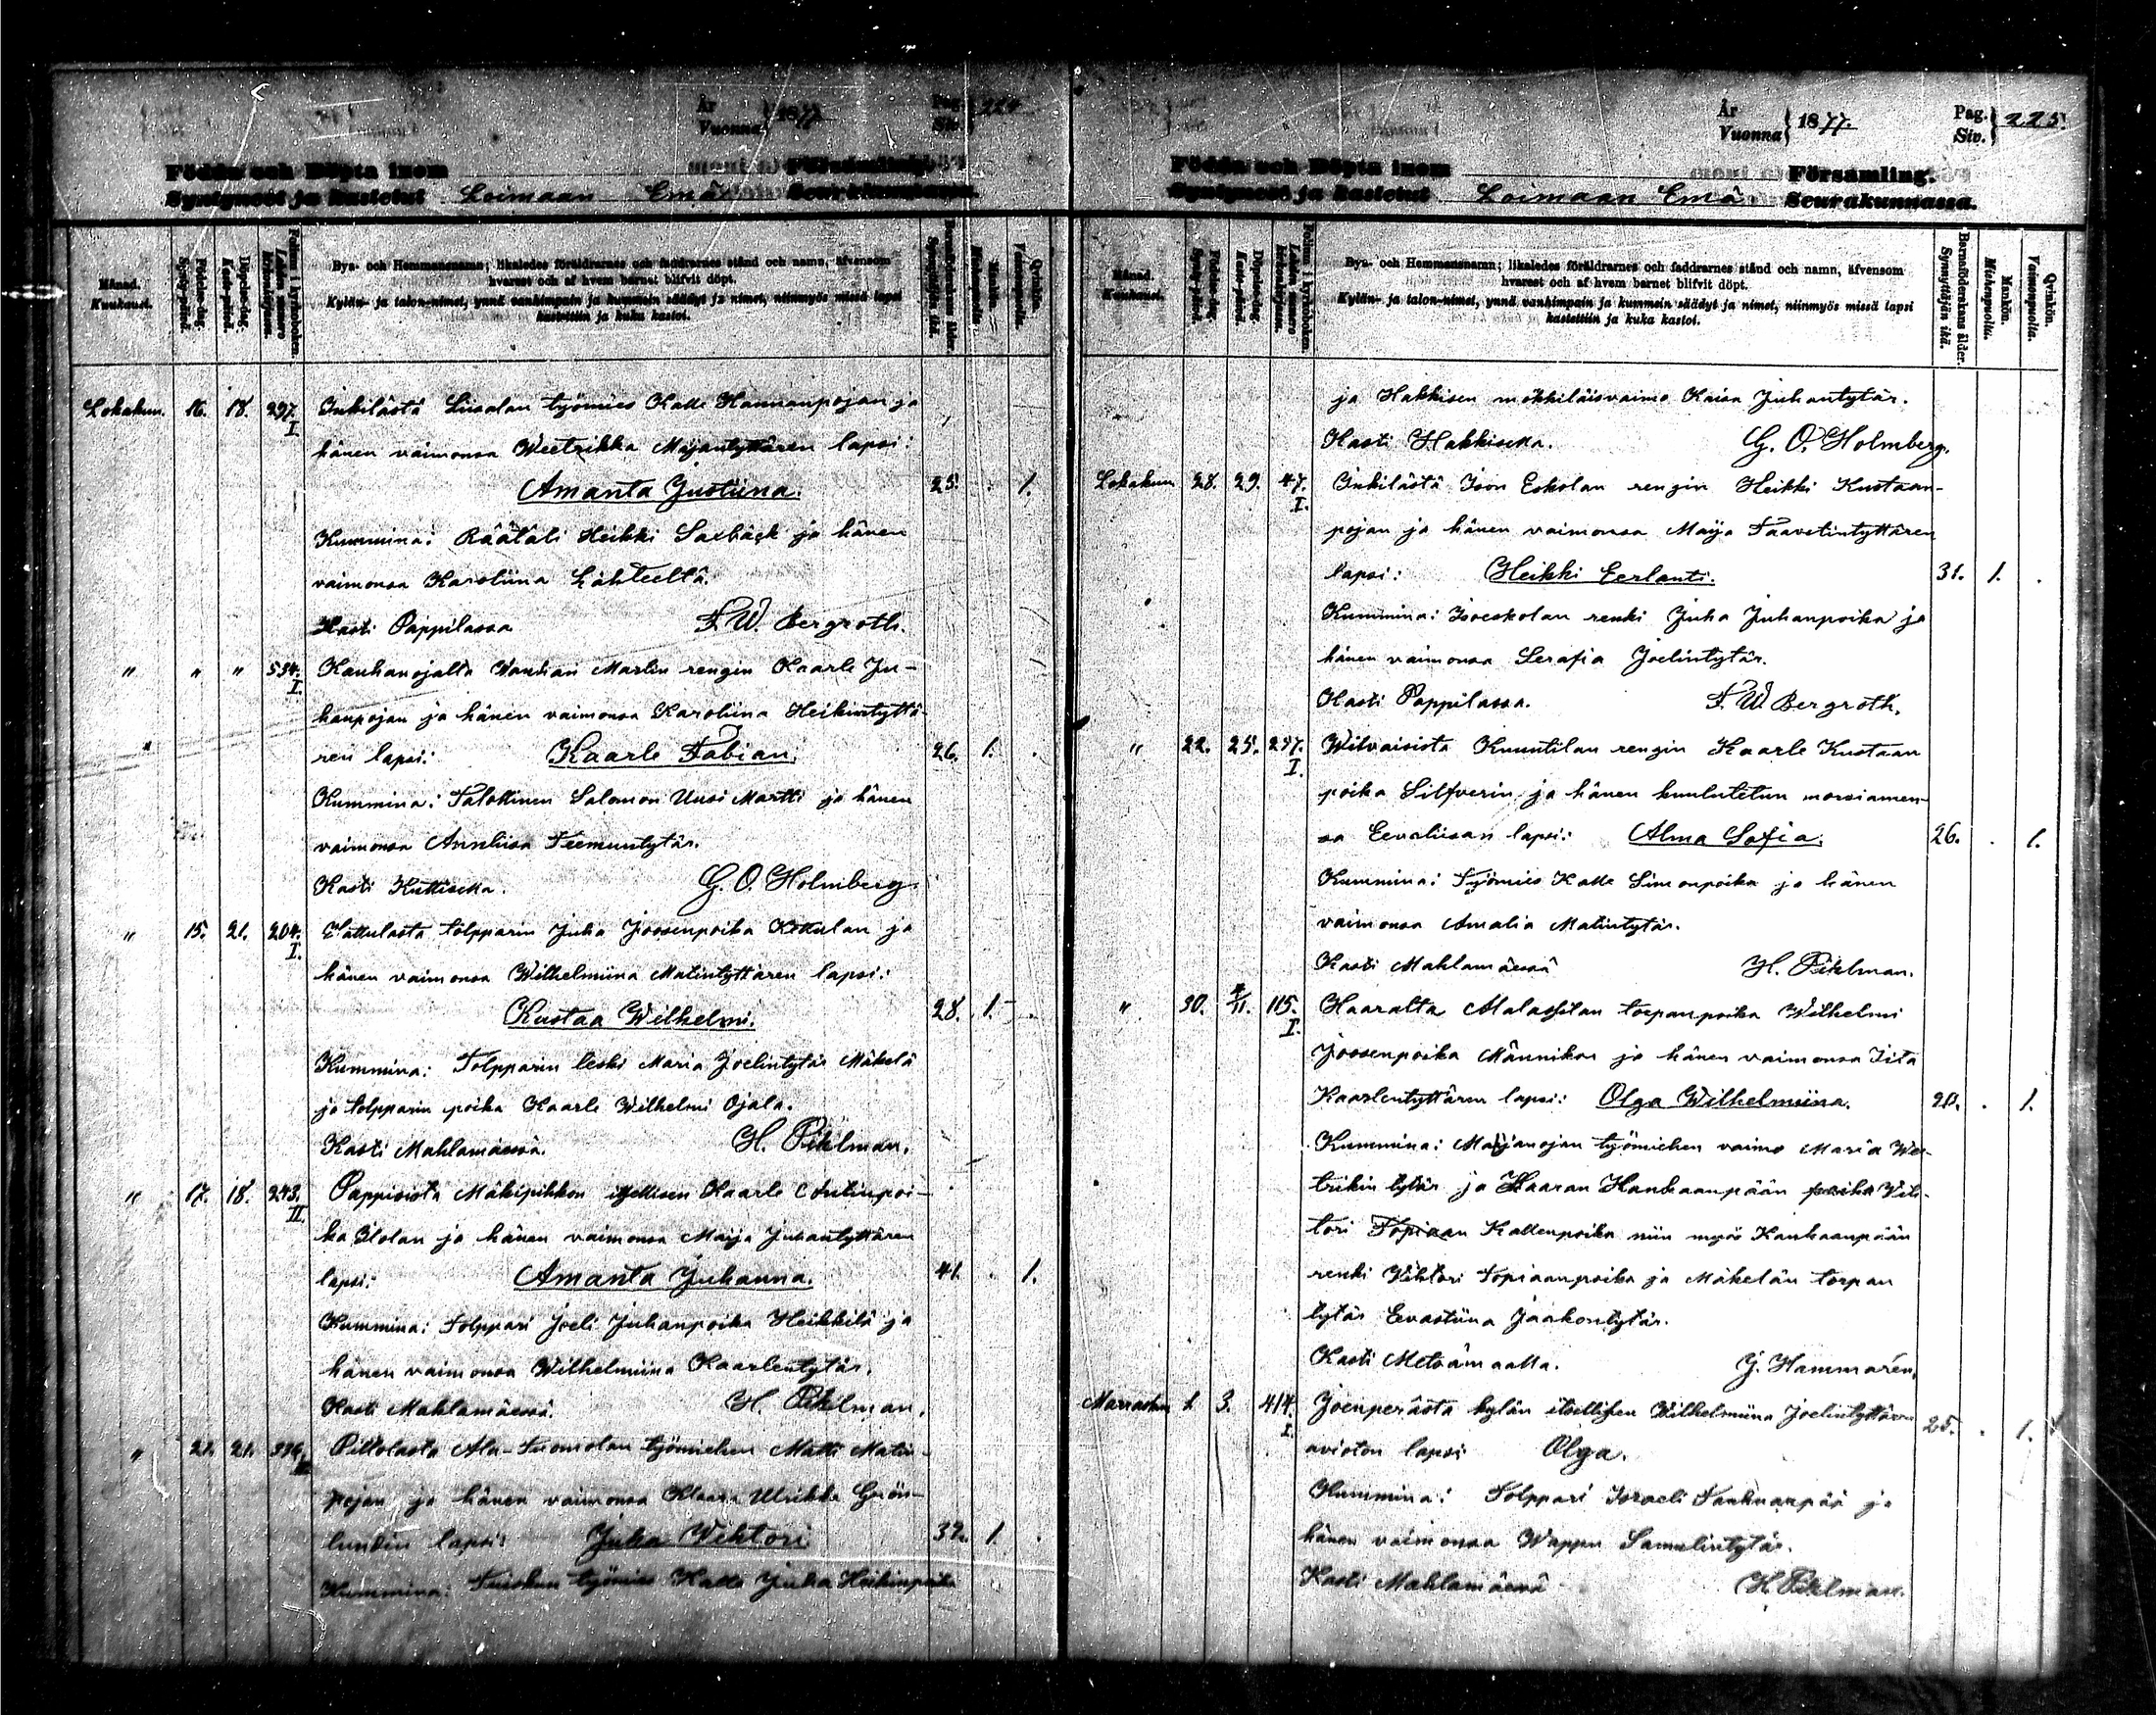 År Vuonna 1877. Pag. Siv. 224
Födda och Döpta inom Församling.
Syntyneet ja kastetut Loimaan Emä Seurakunnassa.
Månad. Kuukausi.
Födelse-dag. Synty-päivä.
Döpelse-dag. Kaste-päivä.
Folium i kyrkoboken. Lehden numero kirkonkirjassa.
Bya- och Hemmansnamn; likaledes föräldrarnes och faddrarnes stånd och namn, äfvensom
hvarest och af hvem barnet blifvit döpt.
Kylän- ja talon-nimet, ynnä vanhimpain ja kummein säädyt ja nimet, niinmyös missä lapsi
kastettiin ja kuka kastoi.
Barnaföderskans ålder. Synnyttäjän ikä.
Mankön. Miehenpuolia.
Qvinkön. Vaimonpuolia.
Lokakuu. 16. 18. 297. I Inkilästä Liisalan työmies Kalle Hannanpojan ja
hänen vaimonsa Weetrikka Maijantyttären lapsi:
Amanta Justiina. 25. 1.
Kummina: Räätäli Heikki Saxbäck ja hänen
vaimonsa Karoliina Lähteeltä.
Kasti Pappilassa F. W. Bergroth.
" " " 534. I. Kauhanojalta Wanhan Martin rengin Kaarle Ju-
hanpojan ja hänen vaimonsa Karoliina Heikintyttä-
ren lapsi: Kaarle Fabian. 26. 1.
Kummina: Talollinen Salomon Uusi Martti ja hänen
vaimonsa Annliisa Teemuntytär.
Kasti G. O. Holmberg.
" 15. 21. 204. I. tolpparin Juha Joosenpoika Kottulan ja
hänen vaimonsa Wilhelmiina Matintyttären lapsi:
Kustaa Wilhelmi. 28. 1.
Kummina: Tolpparin leski Maria Joelintytär Mäkelä
ja tolpparin poika Kaarle Wilhelmi Ojala.
Kasti Mahlamäessä. H. Pihlman.
" 17. 18. 243. II. Pappisista Mäkipihkon itsellisen Kaarle Antinpoi-
ka Ilolan ja hänen vaimonsa Maija Juhantyttären
lapsi: Amanta Juhanna. 41. 1.
Kummina: Tolppari Joeli Juhanpoika Heikkilä ja
hänen vaimonsa Wilhelmiina Kaarlentytär.
Kasti Mahlamäessä. H. Pihlman.
" 21. 21. Piltolasta Ala-Tuomolan työmiehen Matti Matin-
pojan ja hänen vaimonsa Klaara Ulriikka Grön-
lundin lapsi: Juha Wihtori 32. 1.
Kummina: työmies Kalle Juha Heikinpoika
År Vuonna 1877. Pag. Siv. 225.
Födda och Döpta inom Församling.
Syntyneet ja kastetut Loimaan Emä Seurakunnassa.
Månad. Kuukausi.
Födelse-dag. Synty-päivä.
Döpelse-dag. Kaste-päivä.
Folium i kyrkoboken. Lehden numero kirkonkirjassa.
Bya- och Hemmansnamn; likaledes föräldrarnes och faddrarnes stånd och namn, äfvensom
hvarest och af hvem barnet blifvit döpt.
Kylän- ja talon-nimet, ynnä vanhimpain ja kummein säädyt ja nimet, niinmyös missä lapsi
kastettiin ja kuka kastoi.
Barnaföderskans ålder. Synnyttäjän ikä.
Mankön. Miehenpuolia.
Qvinkön. Vaimonpuolia.
ja Hakkisen mökkiläisvaimo Kaisa Juhantytär.
Kasti Hakkisella. G. O. Holmberg.
Lokakuu 28. 29. 47. I. Inkilästä Ison Eskolan rengin Heikki Kustaan-
pojan ja hänen vaimonsa Maija Taavetintyttären
lapsi: Heikki Eerlanti. 31. 1.
Kummina: Isoeskolan renki Juha Juhanpoika ja
hänen vaimonsa Serafia Joelintytär.
Kasti Pappilassa. F. W. Bergroth.
" 22. 25. 257. I. Wilvaisista Kuuntilan rengin Kaarle Kustaan
poika Silfverin ja hänen kuulutetun morsiamen-
sa Eevaliisan lapsi: Alma Sofia. 26. 1.
Kummina: Työmies Kalle Simonpoika ja hänen
vaimonsa Amalia Matintytär.
Kasti Mahlamäessä H. Pihlman.
" 30. 4/11. 115. I. Haaralta torpanpoika Wilhelmi
Joosenpoika Männikön ja hänen vaimonsa Iita
Kaarlentyttären lapsi: Olga Wilhelmiina. 20. 1.
Kummina: Marjanojan työmiehen vaimo Maria Wee-
trikin tytär ja Haaran Hanhaanpään poika Wih-
tori Topiaan Kallenpoika niin myös Kanhaanpään
renki Wihtori Topiaanpoika ja Mäkelän torpan
tytär Eevastiina Jaakontytär.
Kasti Metsämaalla. J. Hammarén.
Marraskuu 1. 3. 414. I Joenperästä kylän itsellisen Wilhelmiina Joelintyttären
avioton lapsi Olga. 25. 1.
Kummina: Tolppari Israeli ja
hänen vaimonsa Wappu Samulintytär.
Kasti Mahlamäessä H. Pihlman.